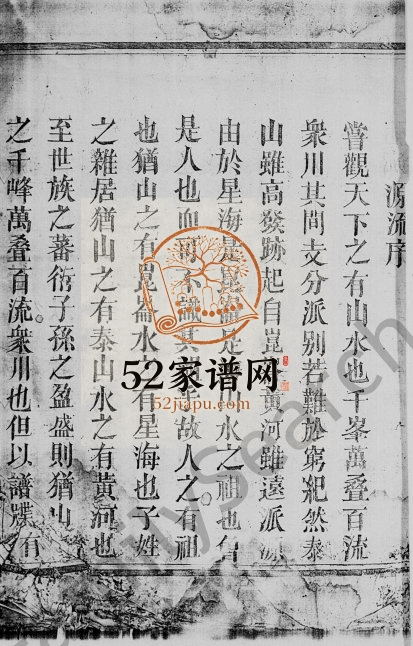 溯流序
嘗觀天下之有山水也千峯萬叠百流
衆川其間支分派别若難於窮紀然泰
山雖高發跡起自崑黃河雖遠派源
由於星海是崑崙是山水之祖也
是人也而可不識其故人之有祖
也猶山之有崑崙水之有星海也子姓
之雜居猶山之有泰山水之有黃河也
至世族之蕃衍子孫之盈盛則猶山
之千峰萬叠百流衆川也但以譜牒有
52家谱网
52jiapu.com
ilySearch